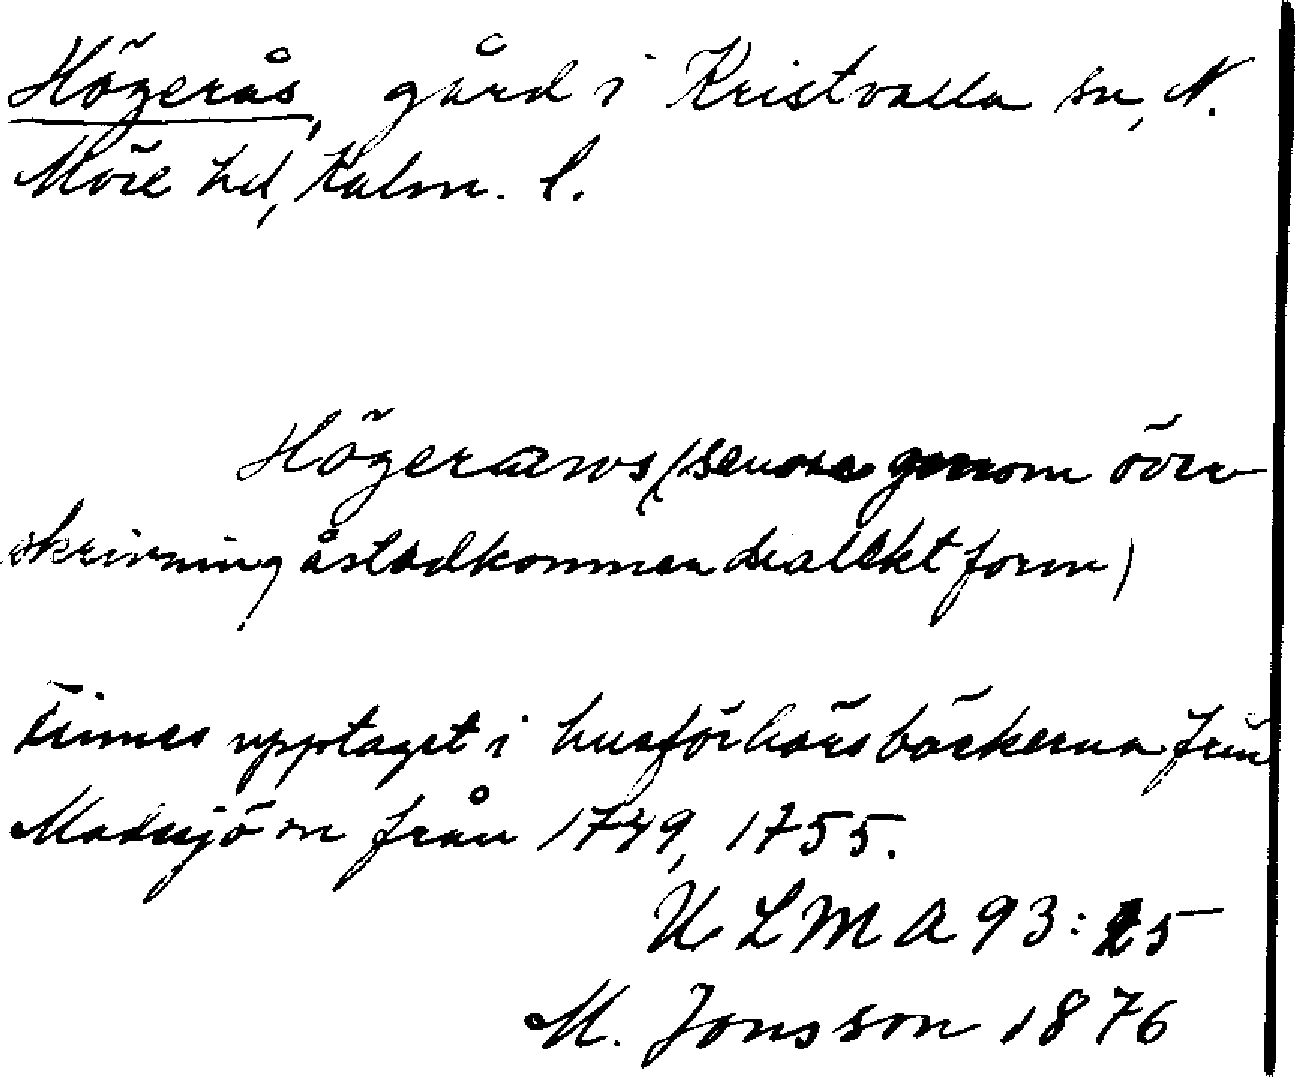 Högerås, gård i Kristvalla sn, N.
Möre hd, Kalm. l.
Högeraws (senare genom över
skrivning åstadkommen dialektform)
Finnes upptaget i husförhörsböckerna från
Madesjö m från 1749, 1755.
ULMA 93:25
M. Jonsson 1876